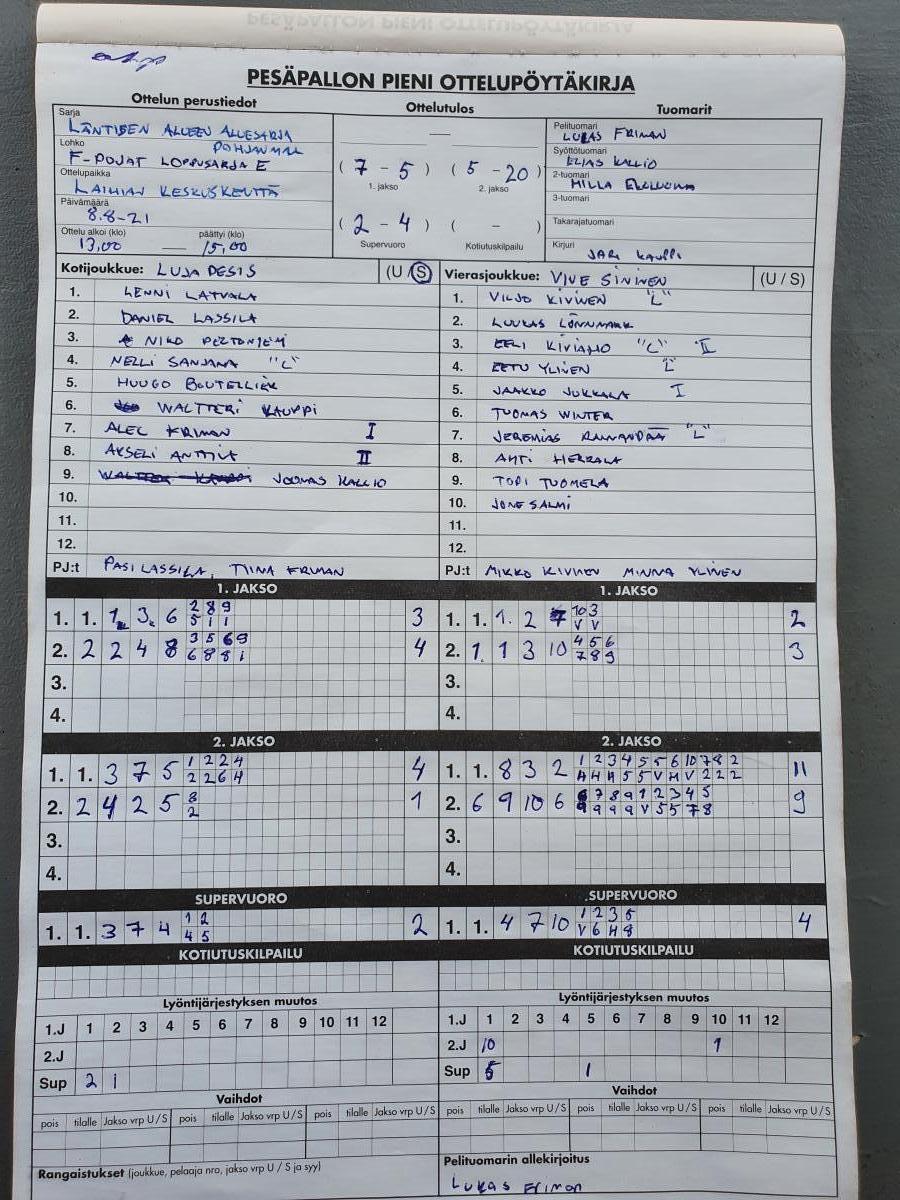 PESÄPALLON PIENI OTTELUPÖYTÄKIRJA
Ottelun perustiedot
Ottelutulos
Tuomarit
Sarja
LÄNTISEN ALUEEN ALUESARJA
POHJANMAA
Lohko
F-POJAT LOPPUSARJA E
Ottelupaikka
LAIHIAN KESKUSKENTTÄ
Päivämäärä
8.8-21
Ottelu alkoi (klo) päättyi (klo)
13,00 — 15,00
( 7 - 5 ) ( 5 - 20 )
1. jakso 2. jakso
( 2 - 4 ) ( - )
Supervuoro Kotiutuskilpailu
Pelituomari
LUKAS FRIMAN
Syöttötuomari
ELIAS KALLIO
2-tuomari
MILLA
3-tuomari
Takarajatuomari
Kirjuri
JARI KAUPPI
Kotijoukkue: LUJA PESIS (U / S)
1. LENNI LATVALA
2. DANIEL LASSILA
3. NIKO PELTONIEMI
4. NELLI SANJANA "C"
5. HUUGO BOUTELLIER
6. WALTTERI KAUPPI
7. ALEC FRIMAN I
8. AKSELI ANTTILA II
9. JOONAS KALLIO
10.
11.
12.
PJ:t PASI LASSILA, TIINA FRIMAN
Vierasjoukkue: VIVE SININEN (U / S)
1. VILJO KIVINEN "L"
2. LUUKAS LÖNNMARK
3. EELI KIVIAHO "C" II
4. EETU YLINEN "L"
5. JAAKKO JUKKALA I
6. TUOMAS WINTER
7. JEREMIAS RANNANPÄÄ "L"
8. AHTI HERRALA
9. TOPI TUOMELA
10. JONE SALMI
11.
12.
PJ:t MIKKO KIVINEN MINNA YLINEN
1. JAKSO
1. 1. 1. 3. 6 2 8 9 3
5 1 1
2. 2 2 4 8 3 5 6 9 4
6 8 8 1
3.
4.
1. JAKSO
1. 1. 1. 2 10 3 2
V V
2. 1. 1 3 10 4 5 6 3
7 8 9
3.
4.
2. JAKSO
1. 1. 3 7 5 1 2 2 4 4
2 2 6 4
2. 2 4 2 5 8 1
2
3.
4.
2. JAKSO
1. 1. 8 3 2 1 2 3 4 5 5 6 10 7 8 2 11
H H H 5 5 V H V 2 2 2
2. 6 9 10 6 6 7 8 9 1 2 3 4 5 9
9 9 9 9 V 5 5 7 8
3.
4.
SUPERVUORO
1. 1. 3 7 4 1 2 2
4 5
SUPERVUORO
1. 1. 4 7 10 1 2 3 5 4
V 6 H 8
KOTIUTUSKILPAILU
KOTIUTUSKILPAILU
Lyöntijärjestyksen muutos
1.J 1 2 3 4 5 6 7 8 9 10 11 12
2.J
Sup 2 1
Lyöntijärjestyksen muutos
1.J 1 2 3 4 5 6 7 8 9 10 11 12
2.J 10 1
Sup 5 1
Vaihdot
pois tilalle Jakso vrp U / S pois tilalle Jakso vrp U / S pois tilalle Jakso vrp U / S
Rangaistukset (joukkue, pelaaja nro, jakso vrp U / S ja syy)
Vaihdot
pois tilalle Jakso vrp U / S pois tilalle Jakso vrp U / S pois tilalle Jakso vrp U / S
Pelituomarin allekirjoitus
Lukas Friman